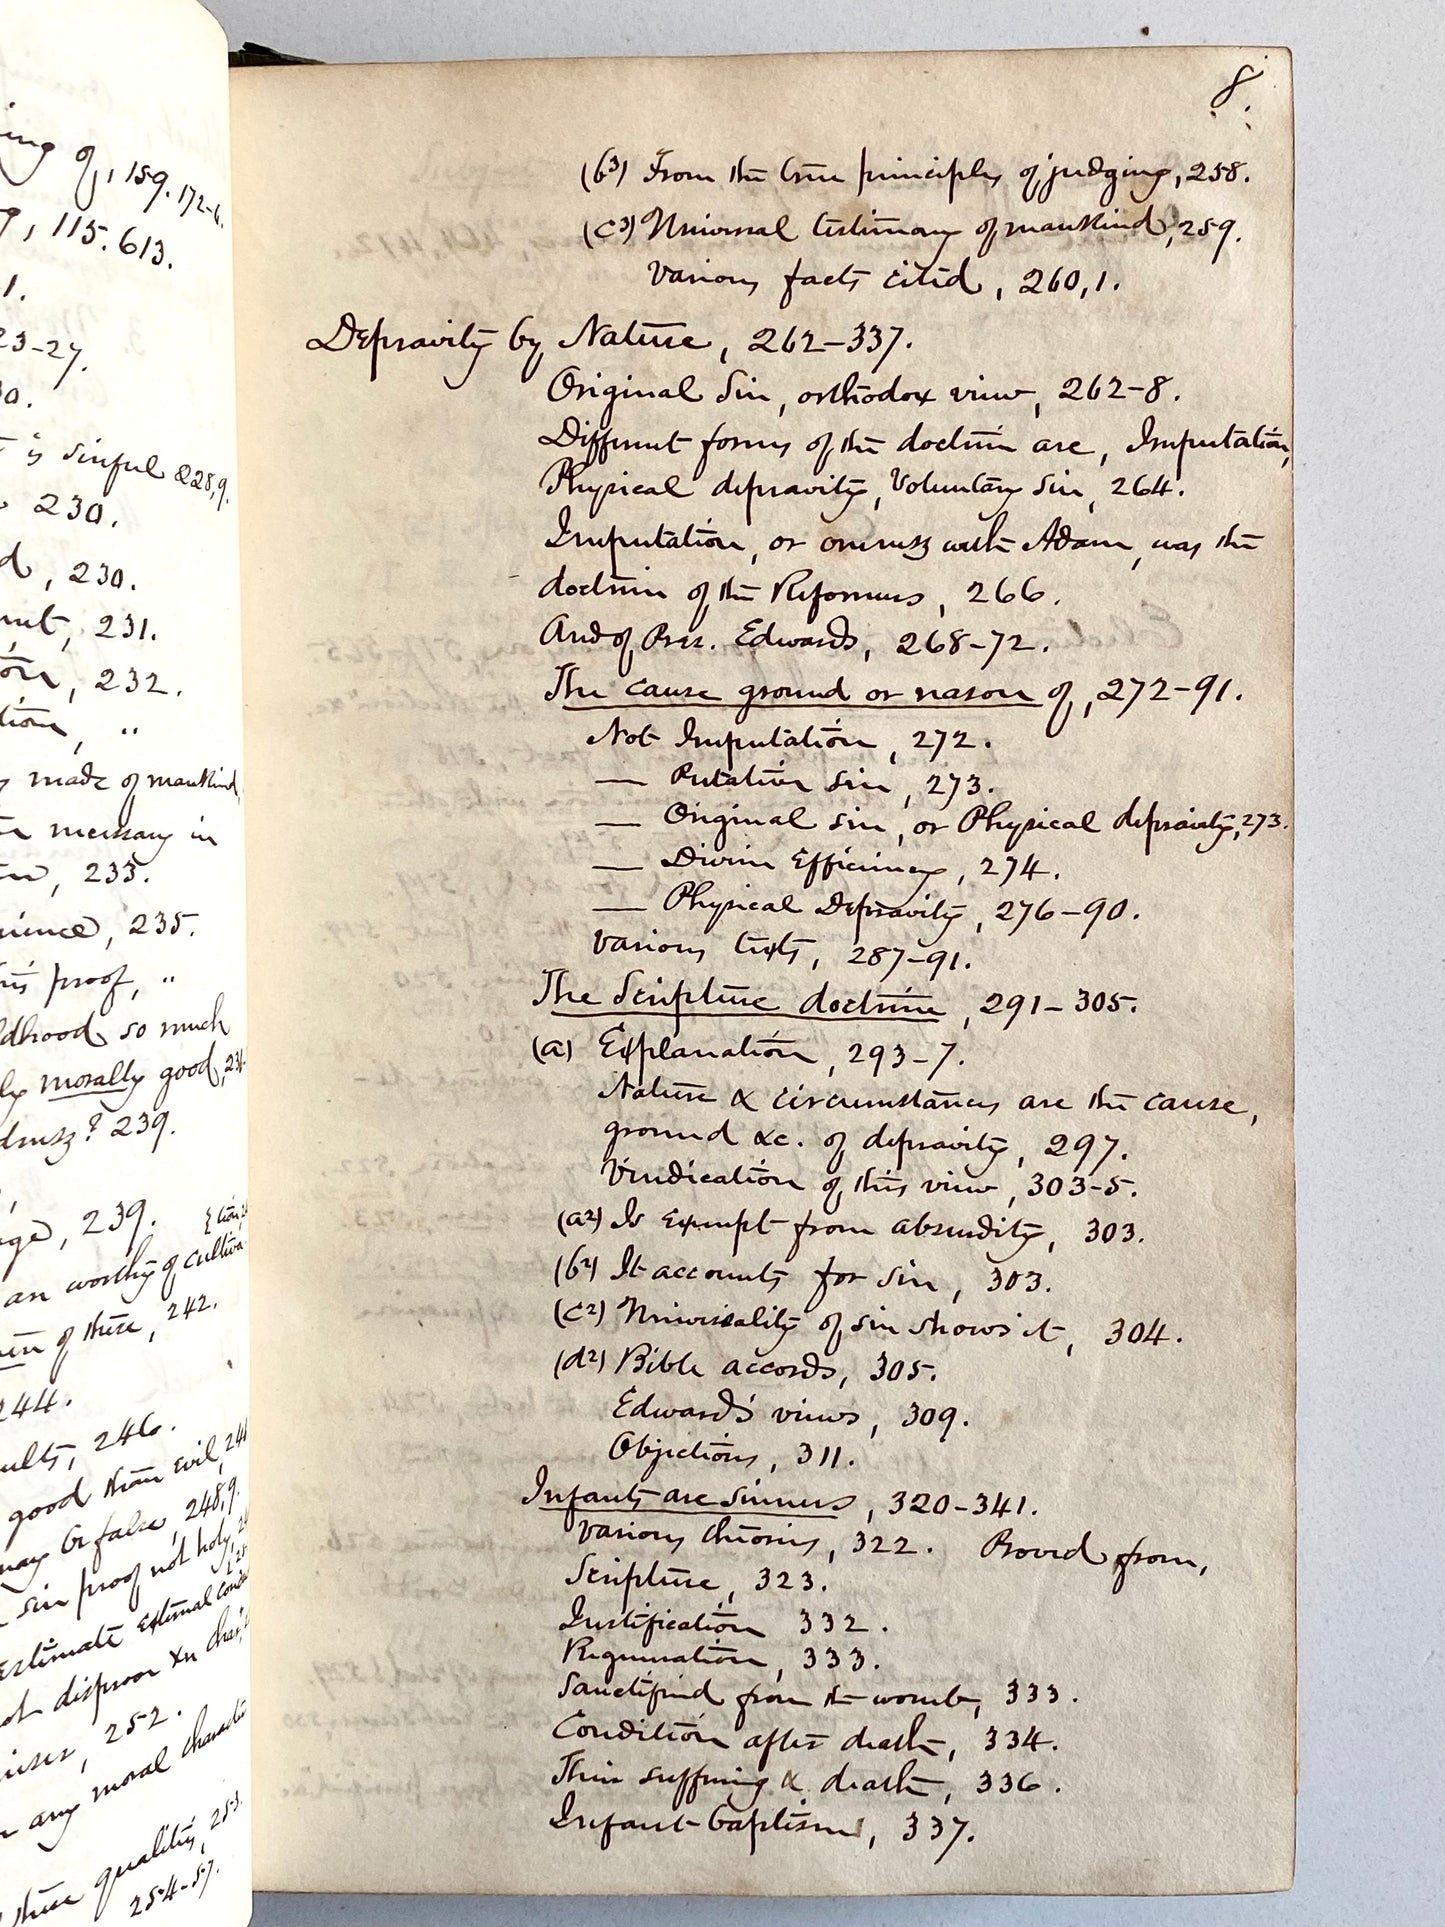 ing of, 159. 172-6.
, 115. 613.
1.
23-27.
30.
is sinful 228,9.
230.
d, 230.
ent, 231.
on, 232.
tion, "
made of mankind,
necessary in
, 233.
rience, 235.
his proof, "
ldhood so much
ly morally good, 23
dness? 239.
age, 239.
an worthy of cultiva
of these, 242.
244.
ults, 246.
good than evil, 24
may be false, 248,9.
sin proof not holy,
estimate external cond
ot disprove
, 252.
any moral character
these qualities, 253.
254-57.
8.
(b³) From the true principles of judging, 258.
(c³) Universal testimony of mankind, 259.
Various facts cited, 260,1.
Depravity by Nature, 262-337.
Original Sin, orthodox view, 262-8.
Different forms of the doctrine are, Imputation,
Physical depravity, Voluntary Sin, 264.
Imputation, or oneness with Adam, was the
doctrine of the Reformers, 266.
And of Pres. Edwards, 268-72.
The cause ground or reason of, 272-91.
Not Imputation, 272.
— Putative sin, 273.
— Original sin, or Physical depravity, 273.
— Divine Efficiency, 274.
— Physical Depravity, 276-90.
Various texts, 287-91.
The Scripture doctrine, 291-305.
(a) Explanation, 293-7.
Nature & circumstances are the cause,
ground &c. of depravity, 297.
Vindication of this view, 303-5.
(a²) Is exempt from absurdity, 303.
(b²) It accounts for sin, 303.
(c²) Universality of sin shows it, 304.
(d²) Bible accords, 305.
Edwards' views, 309.
Objections, 311.
Infants are sinners, 320-341.
Various theories, 322. Proved from,
Scripture, 323.
Justification 332.
Regeneration, 333.
Sanctified from the womb, 333.
Condition after death, 334.
Their suffering & death, 336.
Infant baptism, 337.